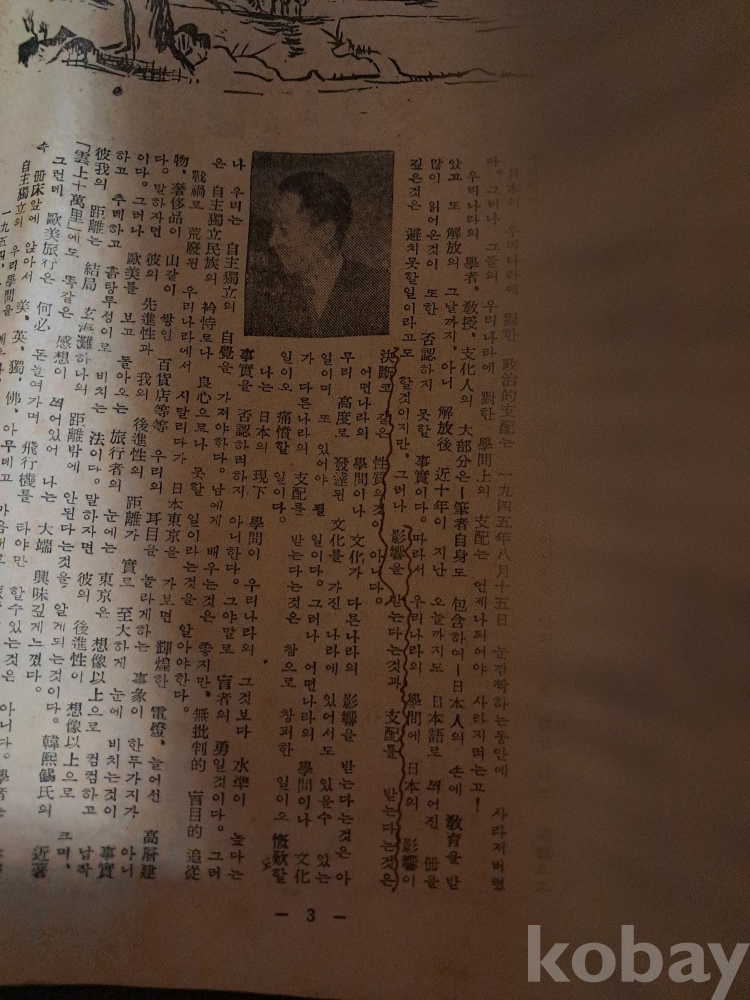 日本의 우리나라에 對한 政治的支配는 一九四五年八月十五日 눈깜짝하는동안에 사라저버렸
다. 그러나 그들의 우리나라에 對한 學問上의 支配는 언제나되어야 사라지려는고!
우리나라의 學者, 敎授, 文化人의 大部分은—筆者自身도 包含하여—日本人의 손에 敎育을 받
았고 또 解放의 그날까지, 아니 解放後 近十年이 지난 오늘까지도 日本語로 적어진 冊을
많이 읽어온것이 또한 否認하지 못할 事實이다. 따라서 우리나라의 學問에 日本의 影響이
깊은것은 避치못할일이라고도 할것이지만, 그러나 影響을 받는다는것과 支配를 받는다는것은
決斷코 같은 性質의것이 아니다.
어떤나라의 學問이나 文化가 다른나라의 影響을 받는다는것은 아
무리 高度로 發達된 文化를 가진 나라에 있어서도 있을수 있는
일이며 또 있어야 될 일이다. 그러나 어떤나라의 學問이나 文化
가 다른나라의 支配를 받는다는것은 참으로 창피한 일이오 慨歎할
일이오 痛憤할 일이다.
나는 日本의 現下 學問이 우리나라의 그것보다 水準이 높다는
事實을 否認하려하지 아니한다. 그야말로 盲者의 勇일것이다. 그러
나 우리는 自主獨立의 自覺을 가져야한다. 남에게 배우는것은 좋지만, 無批判的 盲目的 追從
은 自主獨立民族의 衿恃로나 良心으로나 못할 일이라는것을 알아야한다.
戰禍로 荒廢된 우리나라에서 시달리다가 日本東京을 가보면 輝煌한 電燈, 늘어선 高層建
物, 奢侈品이 山같이 쌓인 百貨店等等 우리의 耳目을 놀라게하는 事象이 한두가지가 아니
다. 말하자면 彼의 先進性과 我의 後進性의 距離가 實로 至大하게 눈에 비치는것이 事實
이다. 그러나 歐美를 보고 돌아오는 旅行者의 눈에는 東京은 想像以上으로 컴컴하고 납작
하고 추메하고 흙탕투성이로 비치는 法이다. 말하자면 彼의 後進性이 想像以上으로 크며,
彼我의 距離는 結局 玄海灘하나의 距離밖에 안된다는것을 알게되는것이다. 韓熙錫氏의 近著
「雲上十萬里」에도 똑같은 感想이 적어있어 나는 大端 興味깊게느꼈다.
그런데 歐美旅行은 何必 돈들여가며 飛行機를 타야만 할수있는것은 아니다. 學者는
속 冊床앞에 앉아서 美, 英, 獨, 佛, 아무데고 마음대로
自主獨立의 우리學問을
一九五四,
— 3 —
kobay